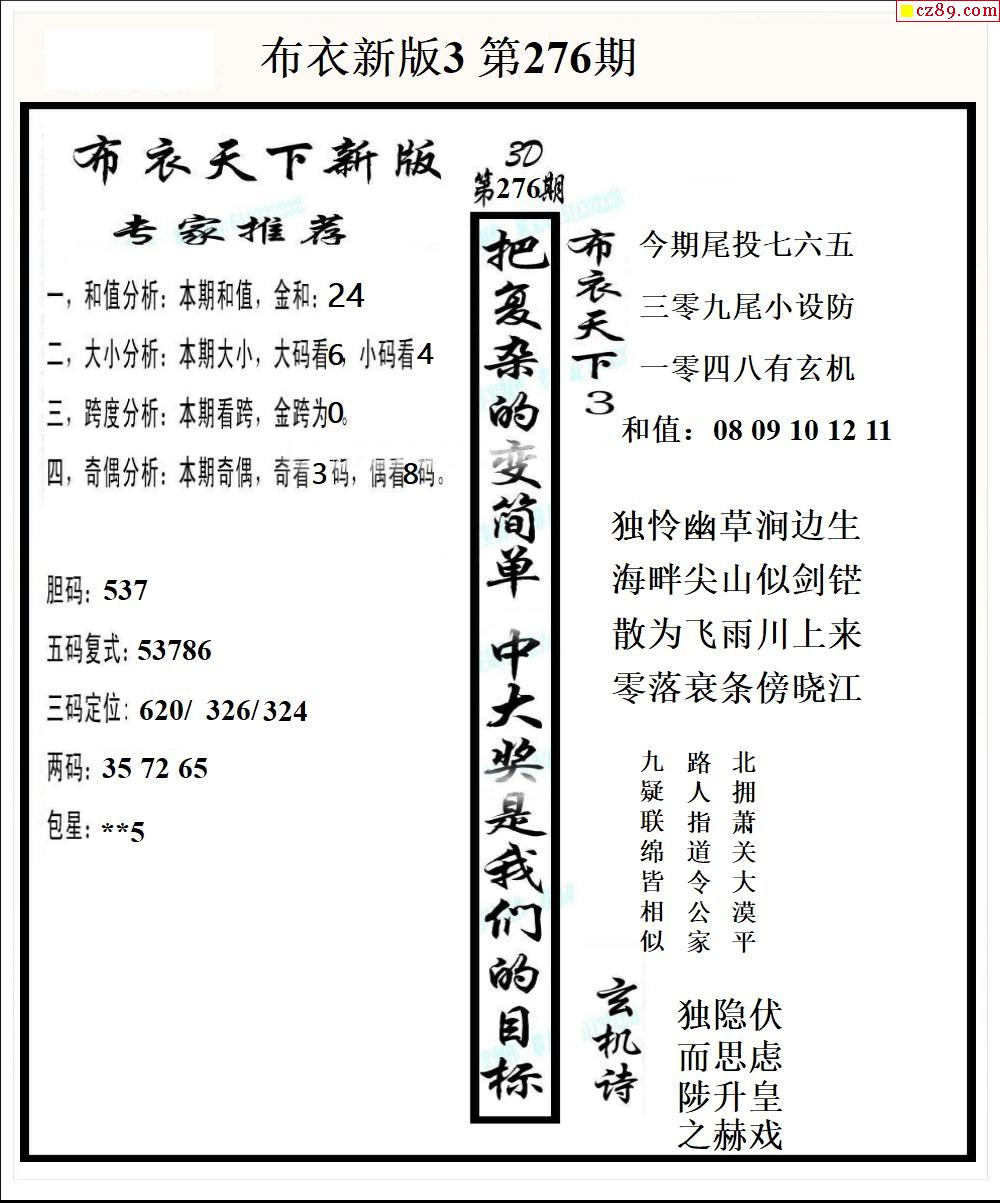 cz89.com
布衣新版3 第276期
布衣天下新版
专家推荐
一，和值分析：本期和值，金和：24
二，大小分析：本期大小，大码看6，小码看4
三，跨度分析：本期看跨，金跨为0。
四，奇偶分析：本期奇偶，奇看3码，偶看8码。
胆码：537
五码复式：53786
三码定位：620/ 326/324
两码：35 72 65
包星：**5
3D
第276期
把复杂的变简单 中大奖是我们的目标
布衣天下3
今期尾投七六五
三零九尾小设防
一零四八有玄机
和值：08 09 10 12 11
独怜幽草涧边生
海畔尖山似剑铓
散为飞雨川上来
零落衰条傍晓江
北拥萧关大漠平
路人指道令公家
九疑联绵皆相似
玄机诗
独隐伏
而思虑
陟升皇
之赫戏